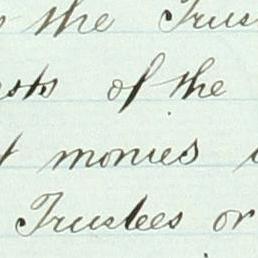 the Trus
sts of the
t monies
Trustees or